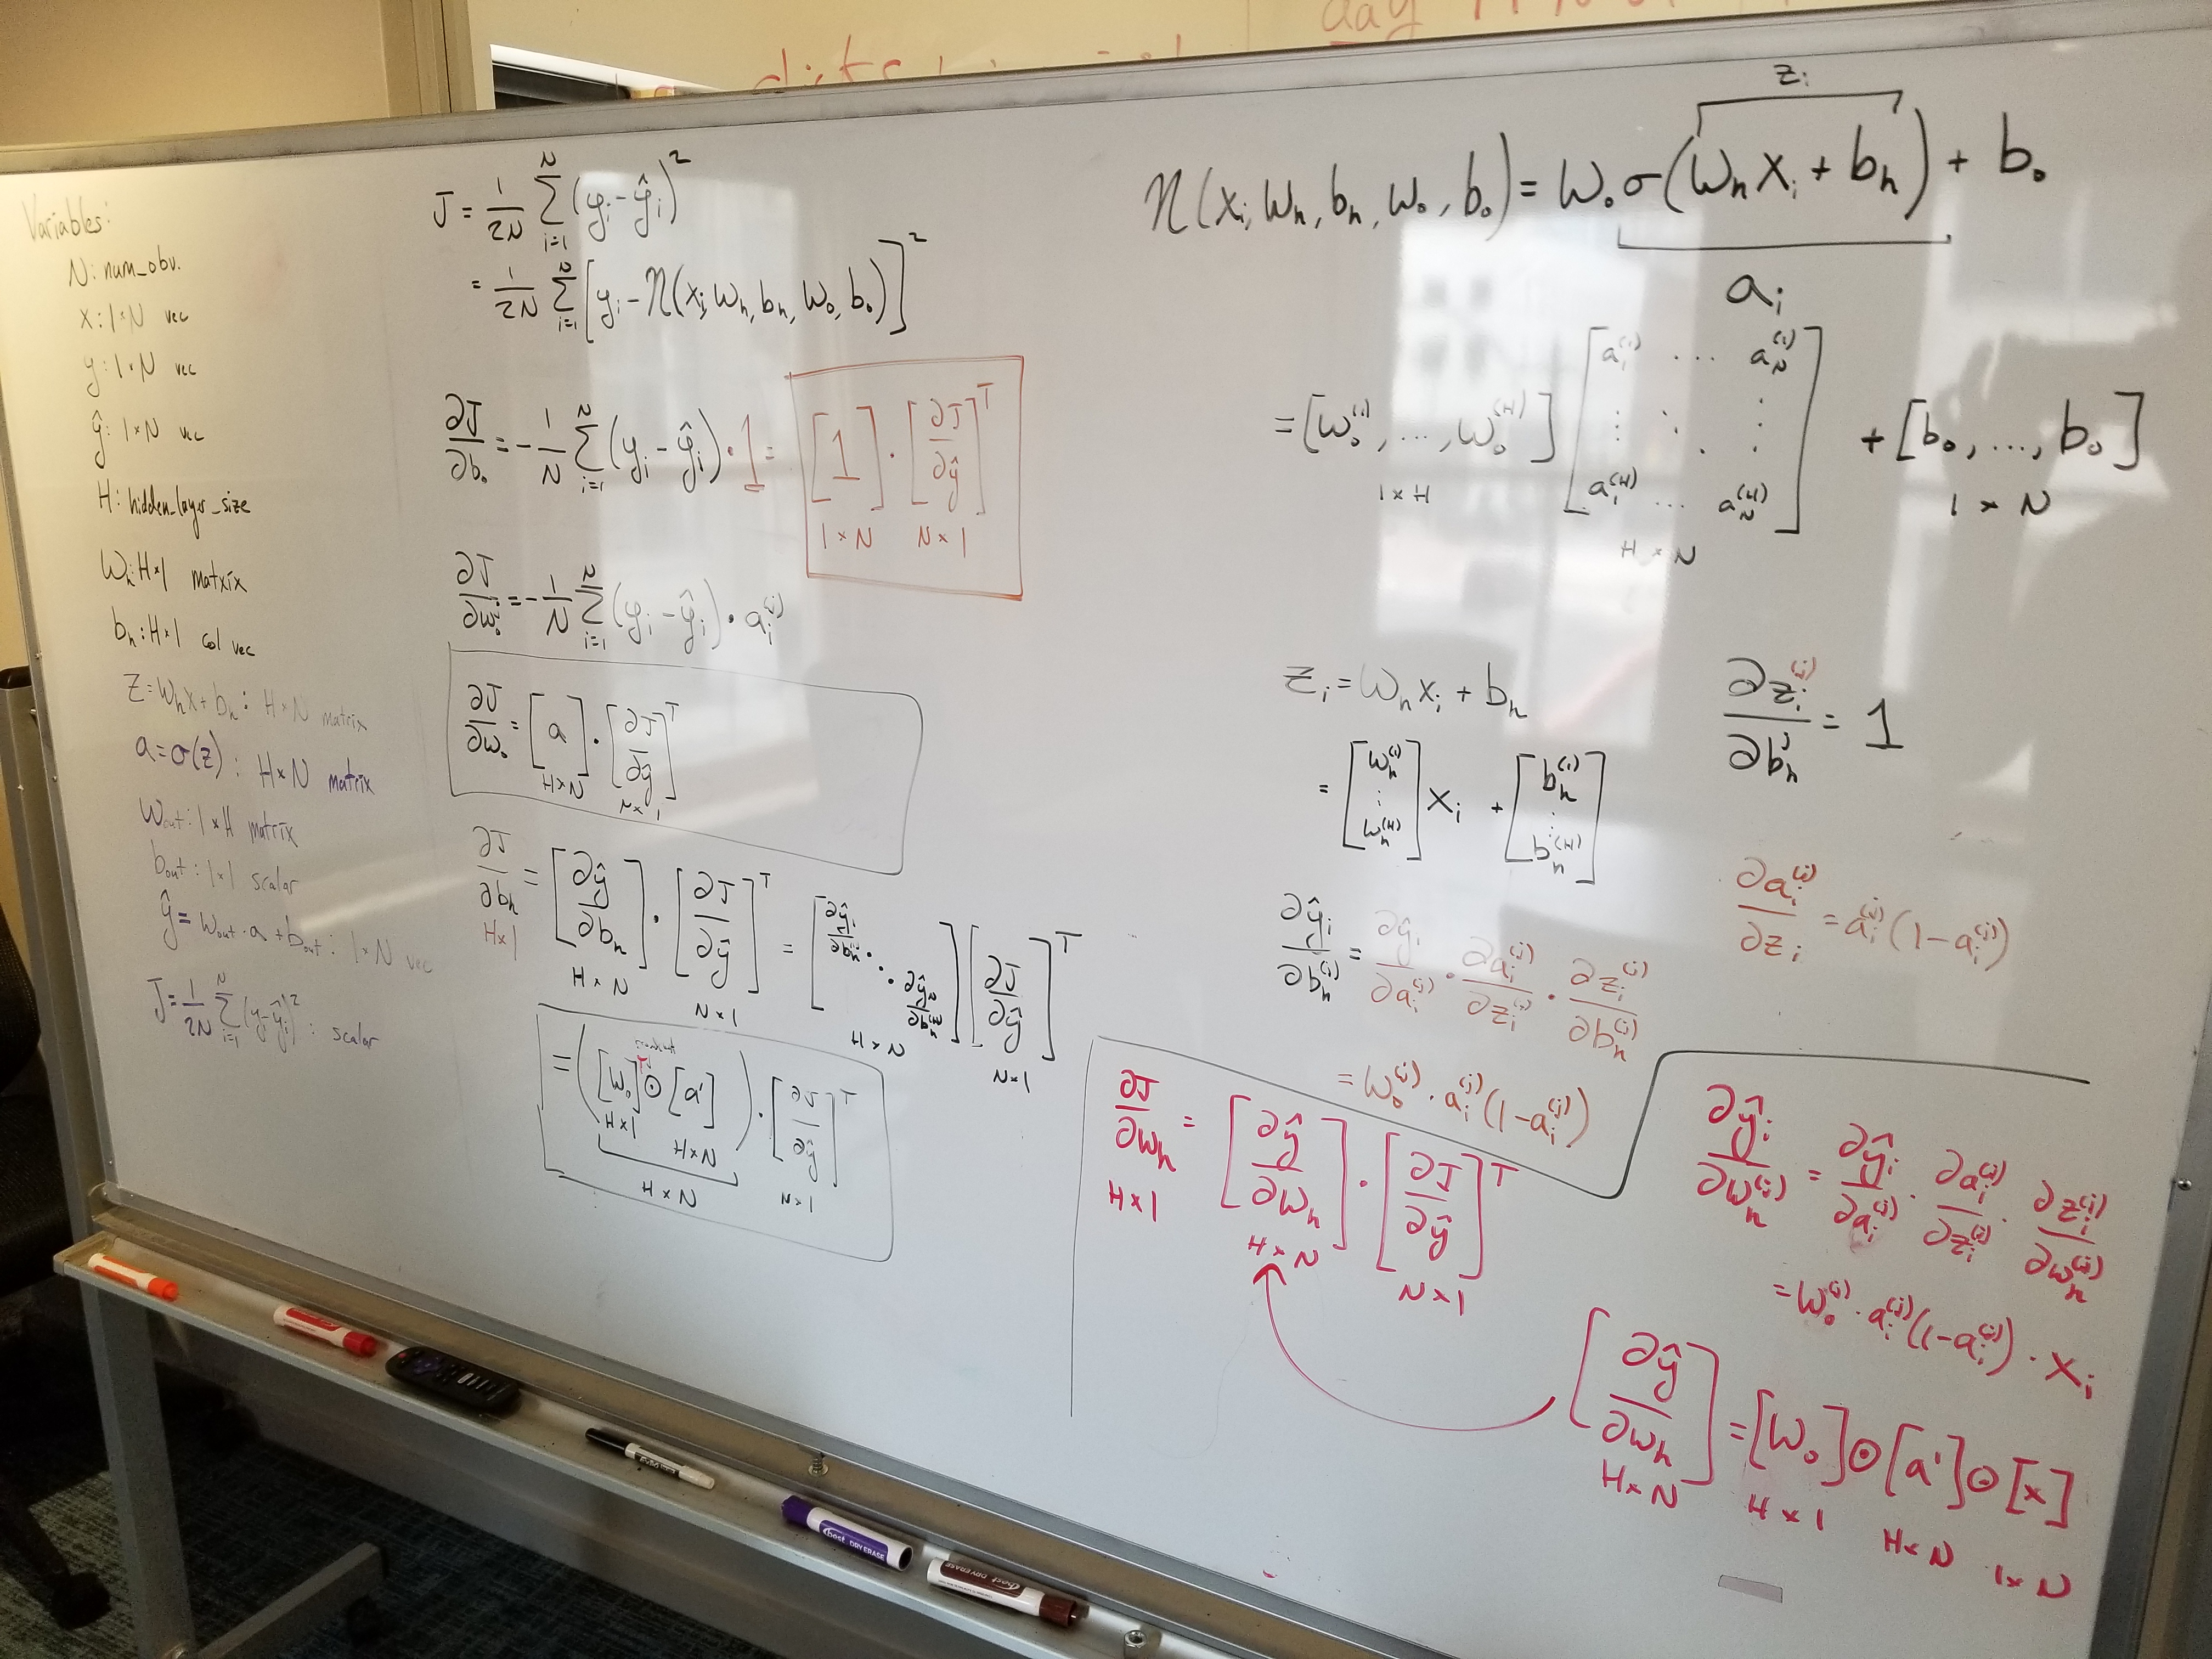 Variables:
N: num_obv.
x: 1×N vec
y: 1×N vec
ŷ: 1×N vec
H: hidden_layer_size
W_h: H×1 matrix
b_h: H×1 col vec
Z = W_h x + b_h : H×N matrix
a = σ(z) : H×N matrix
W_out : 1×H matrix
b_out : 1×1 scalar
ŷ = W_out · a + b_out : 1×N vec
J = 1/2N Σ_{i=1}^{N} (y_i - ŷ_i)² : scalar
J = 1/2N Σ_{i=1}^{N} (y_i - ŷ_i)²
= 1/2N Σ_{i=1}^{N} [y_i - η(x_i, W_h, b_h, W_o, b_o)]²
∂J/∂b_o = -1/N Σ_{i=1}^{N} (y_i - ŷ_i) · 1 = [1] · [∂J/∂ŷ]^T
1×N N×1
∂J/∂w_o^j = -1/N Σ_{i=1}^{N} (y_i - ŷ_i) · a_i^(j)
∂J/∂w_o = [a] · [∂J/∂ŷ]^T
H×N N×1
∂J/∂b_h = [∂ŷ/∂b_h] · [∂J/∂ŷ]^T = [∂ŷ_1/∂b_h^(1) ⋱ ∂ŷ_N/∂b_h^(H)] [∂J/∂ŷ]^T
H×1 H×N N×1 H×N N×1
= ([W_o]^T ⊙ [a']) · [∂J/∂ŷ]^T
H×1 H×N N×1
H×N
z_i
η(x_i, W_h, b_h, W_o, b_o) = W_o σ(W_h x_i + b_h) + b_o
a_i
= [W_o^(1), ..., W_o^(H)] [a_1^(1) ... a_N^(1) ⋮ ⋱ ⋮ a_1^(H) ... a_N^(H)] + [b_o, ..., b_o]
1×H H×N 1×N
z_i = W_h x_i + b_h
= [w_h^(1) ⋮ w_h^(H)] x_i + [b_h^(1) ⋮ b_h^(H)]
∂z_i^(j)/∂b_h^j = 1
∂a_i^(j)/∂z_i = a_i^(j) (1 - a_i^(j))
∂ŷ_i/∂b_h^(j) = ∂ŷ_i/∂a_i^(j) · ∂a_i^(j)/∂z_i^(j) · ∂z_i^(j)/∂b_h^(j)
= W_o^(j) · a_i^(j) (1 - a_i^(j))
∂J/∂w_h = [∂ŷ/∂w_h] · [∂J/∂ŷ]^T
H×1 H×N N×1
∂ŷ_i/∂w_h^(j) = ∂ŷ_i/∂a_i^(j) · ∂a_i^(j)/∂z_i^(j) · ∂z_i^(j)/∂w_h^(j)
= W_o^(j) · a_i^(j) (1 - a_i^(j)) · x_i
[∂ŷ/∂w_h] = [W_o] ⊙ [a'] ⊙ [x]
H×N H×1 H×N 1×N
best DRY ERASE
best DRY ERASE